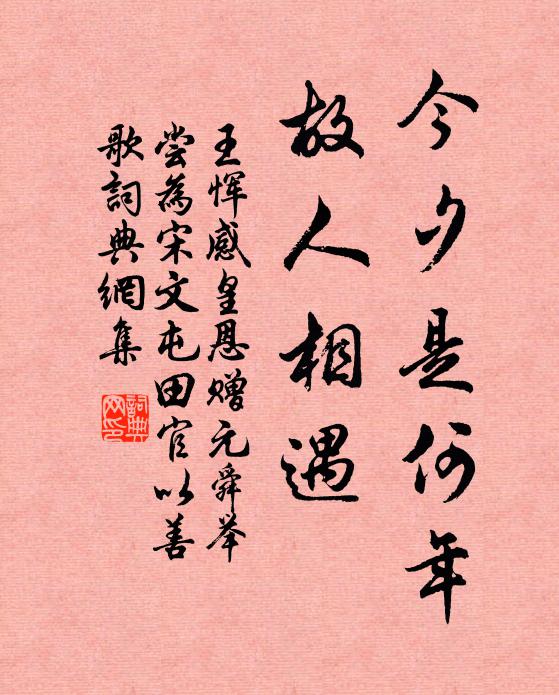 今夕是何年
故人相遇
王惲感皇恩赠元舜举
尝為宋文屯田官以善
歌詞典網集
詞典
网印